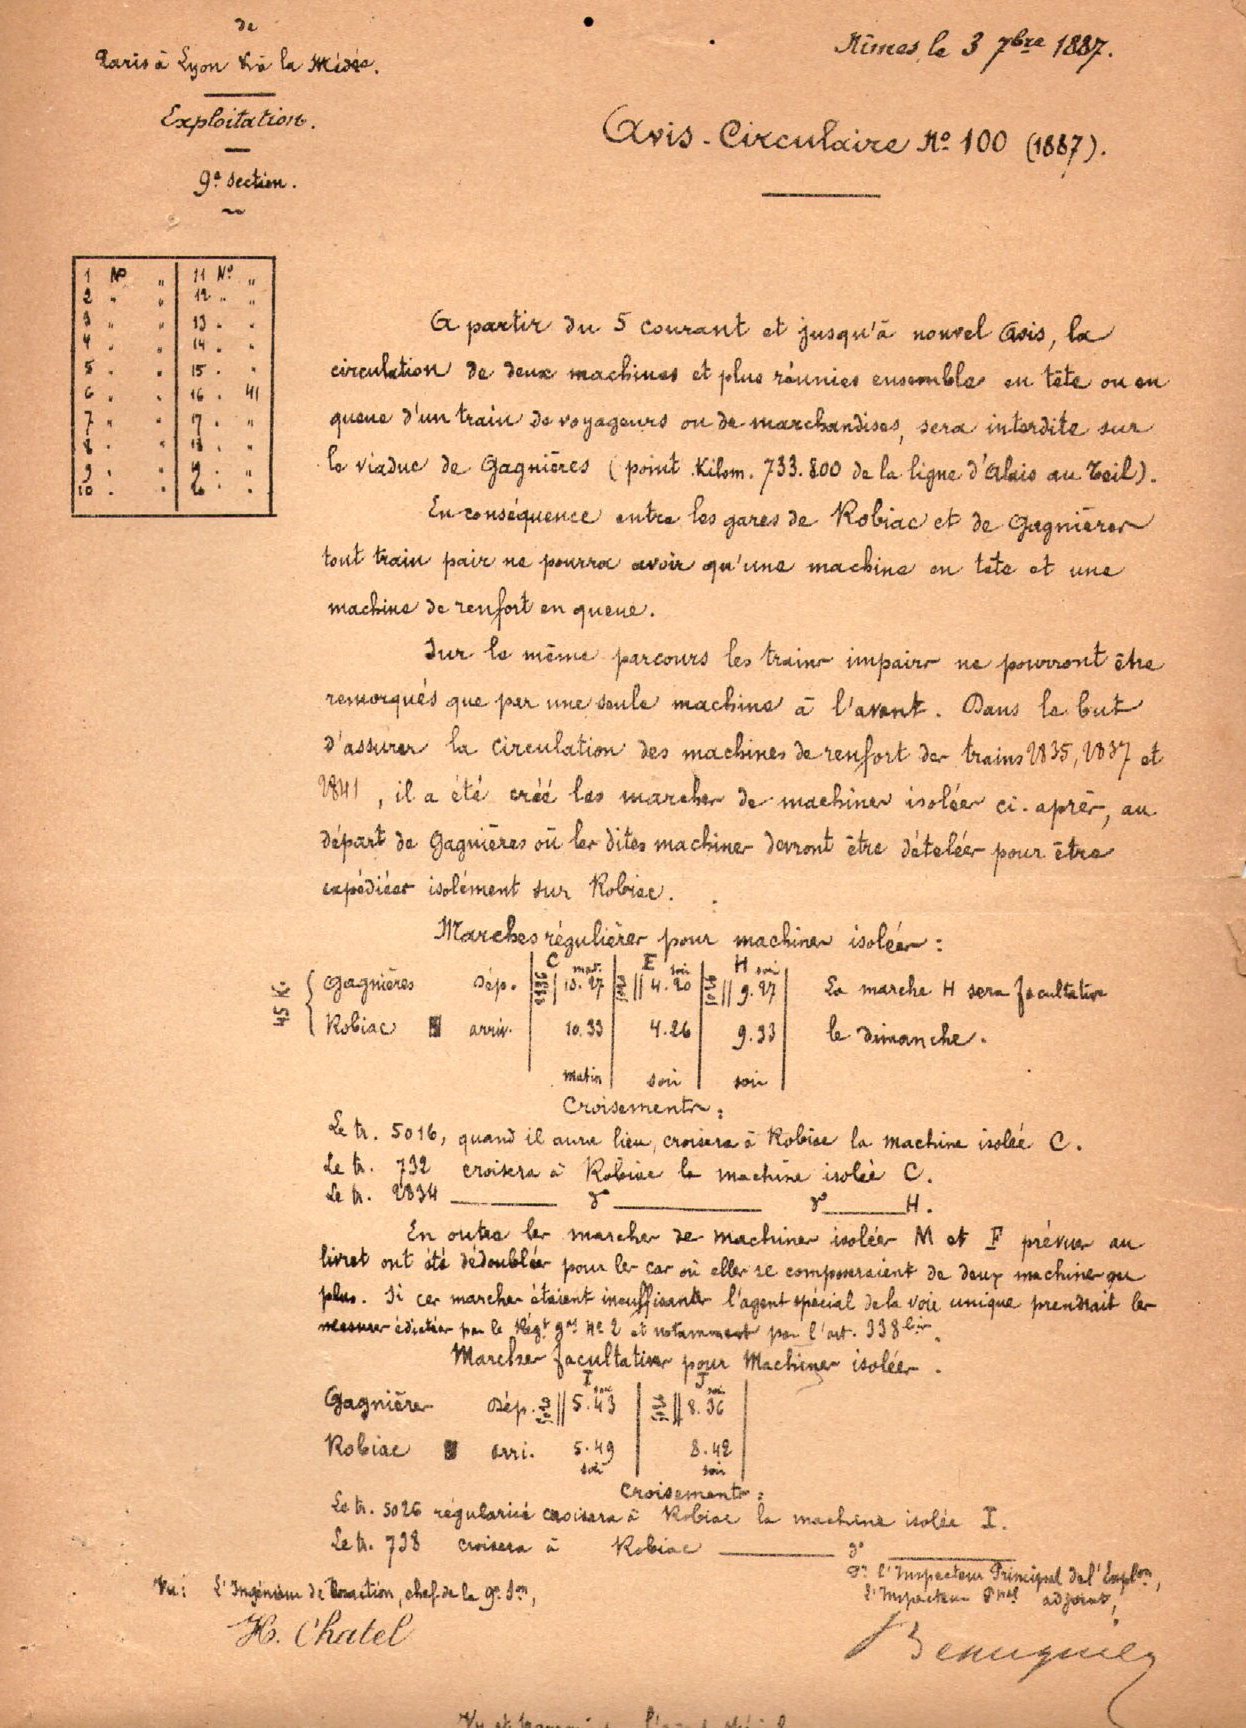 de
Paris à Lyon & à la Médée.
Exploitation.
9e section.
Nîmes, le 3 7bre 1887.
Avis-Circulaire No 100 (1887).
1 No " 11 No "
2 " " 12 " "
3 " " 13 " "
4 " " 14 " "
5 " " 15 " "
6 " " 16 " 41
7 " " 7 " "
8 " " 18 " "
9 " " 9 " "
10 " "
A partir du 5 courant et jusqu'à nouvel Avis, la
circulation de deux machines et plus réunies ensemble en tête ou en
queue d'un train de voyageurs ou de marchandises, sera interdite sur
le viaduc de Gagnières (point Kilom. 733.800 de la ligne d'Alais au Teil).
En conséquence entre les gares de Robiac et de Gagnières
tout train pair ne pourra avoir qu'une machine en tête et une
machine de renfort en queue.
Sur le même parcours les trains impairs ne pourront être
remorqués que par une seule machine à l'avant. Dans le but
d'assurer la circulation des machines de renfort des trains 2835, 2837 et
2841, il a été créé les marches de machines isolées ci-après, au
départ de Gagnières où les dites machines devront être dételées pour être
expédiées isolément sur Robiac.
Marches régulières pour machines isolées :
C E H
45 K. Gagnières Dép. 10.27 mat. 4.20 soir 9.27 soir La marche H sera facultative
Robiac arriv. 10.33 4.26 9.33 le dimanche.
matin soir soir
Croisements :
Le tr. 5016, quand il aura lieu, croisera à Robiac la machine isolée C.
Le tr. 732 croisera à Robiac la machine isolée C.
Le tr. 2834 do do H.
En outre les marches de machines isolées M et F prévues au
livret ont été dédoublées pour le cas où elles se composeraient de deux machines ou
plus. Si ces marches étaient insuffisantes l'agent spécial de la voie unique prendrait les
mesures édictées par le Régt gal No 2 et notamment par l'art. 338 bis.
Marches facultatives pour Machines isolées.
I J
Gagnières Dép. 5.43 soir 8.36 soir
Robiac arri. 5.49 8.42
soir soir
Croisements :
Le tr. 5026 régularisé croisera à Robiac la machine isolée I.
Le tr. 738 croisera à Robiac do
Vu : L'Ingénieur de Traction, chef de la 9e Son,
H. Chatel
Pr l'Inspecteur Principal de l'Explon,
l'Inspecteur Pnal adjoint,